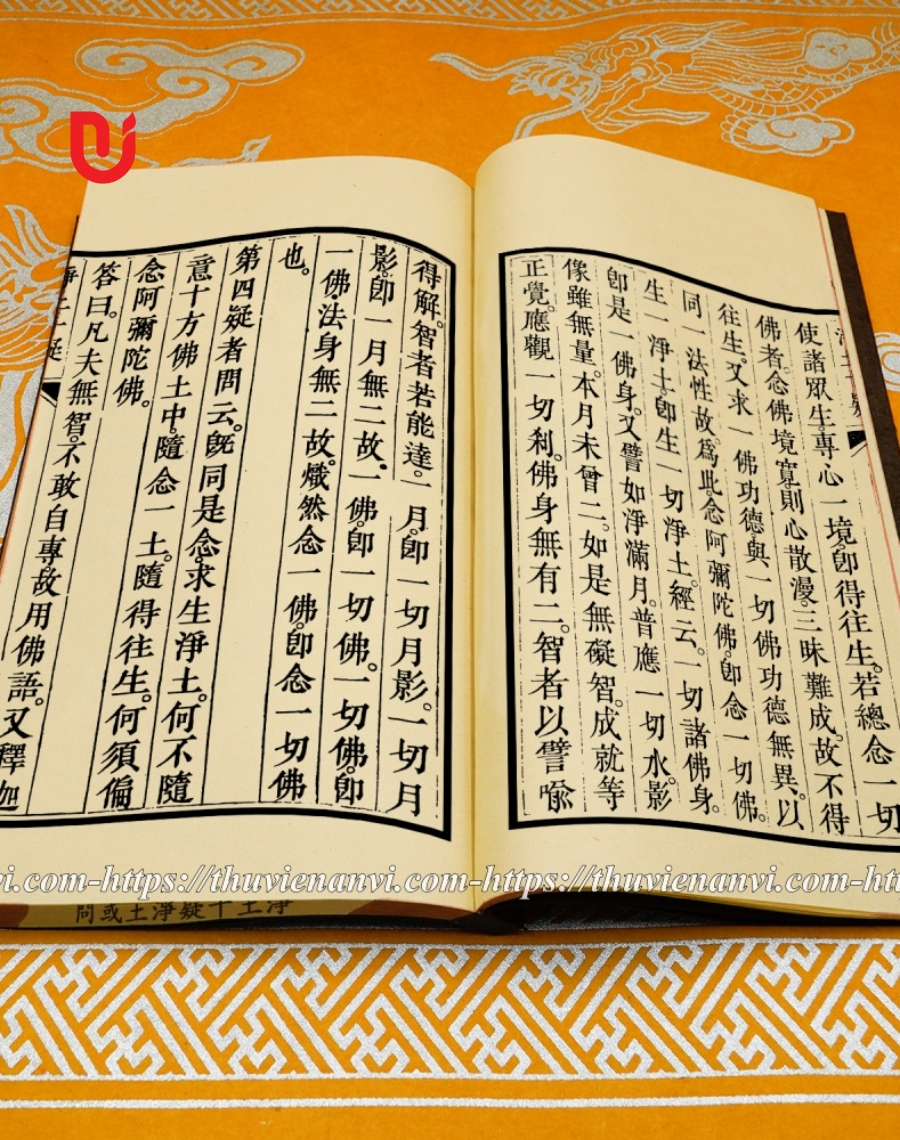 淨土十疑
使諸眾生。專心一境。即得往生。若總念一切
佛者。念佛境寬。則心散漫。三昧難成。故不得
往生。又求一佛功德。與一切佛功德無異。以
同一法性故。為此。念阿彌陀佛。即念一切佛。
生一淨土。即生一切淨土。經云。一切諸佛身。
即是一佛身。又譬如淨滿月。普應一切水。影
像雖無量。本月未曾二。如是無礙智。成就等
正覺。應觀一切刹。佛身無有二。智者以譬喻
得解。智者若能達。一月。即一切月影。一切月
影。即一月無二故。一佛。即一切佛。一切佛。即
一佛。法身無二故。熾然念一佛。即念一切佛
也。
第四疑者問云。既同是念。求生淨土。何不隨
意十方佛土中。隨念一土。隨得往生。何須偏
念阿彌陀佛。
答曰。凡夫無智。不敢自專。故用佛語。又釋迦
淨土十疑
淨土十疑淨土或問
vi.com-https://thuvienanvi.com-https://thuvienanvi.com-htt